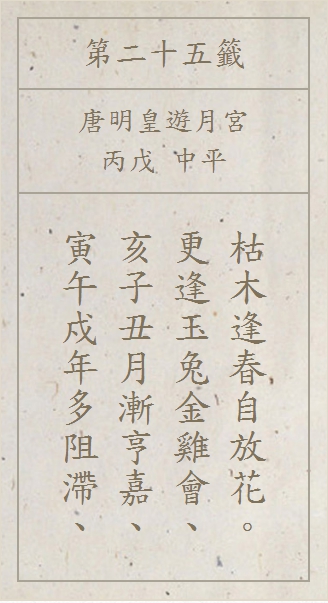 第二十五籤
唐明皇遊月宮
丙戊 中平
寅午戌年多阻滯、
亥子丑月漸亨嘉、
更逢玉兔金雞會、
枯木逢春自放花。